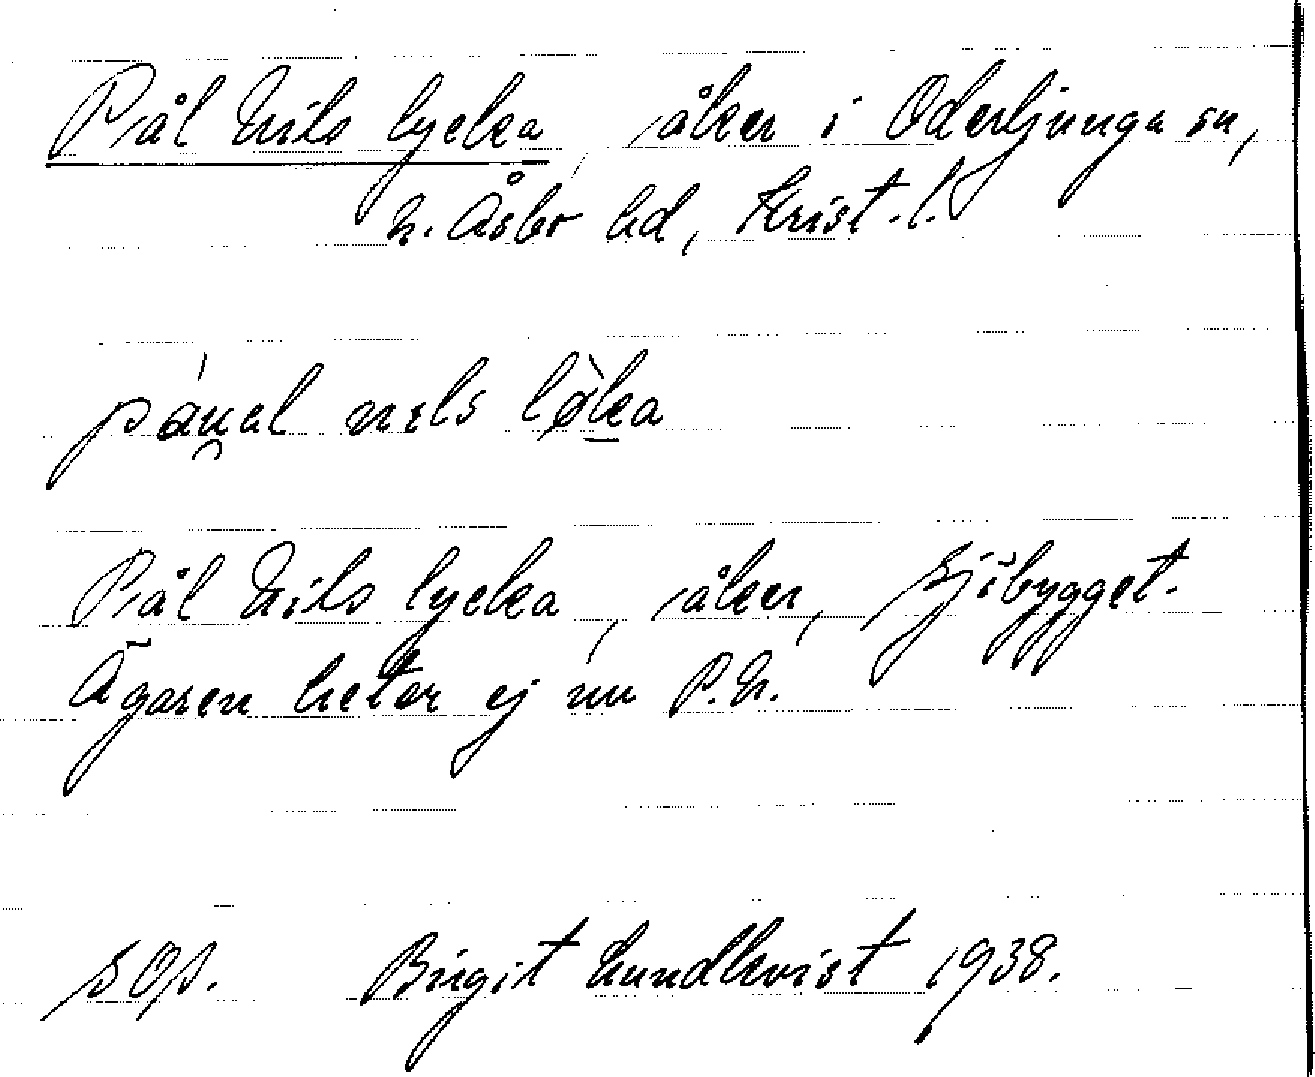 Pål Nils lycka, åker i Oderljunga sn,
N. Åsbo hd, Krist. l.
Pål Nils lycka, åker, Sjöbygget.
Ägaren heter ej nu P.N.
SOA. Birgit Lundkvist 1938.